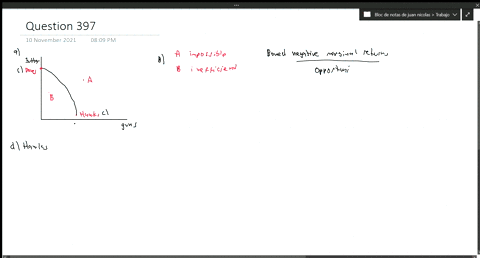 Question 397
18 November 2021 08:09 PM
Bloc de notas de juan nicolas » Trabajo
a)
Butter
c) Doves
A
B
Hawks c)
guns
B) A impossible
B inefficient
Bowed negative marginal returns
Opportuni
d) Hawks